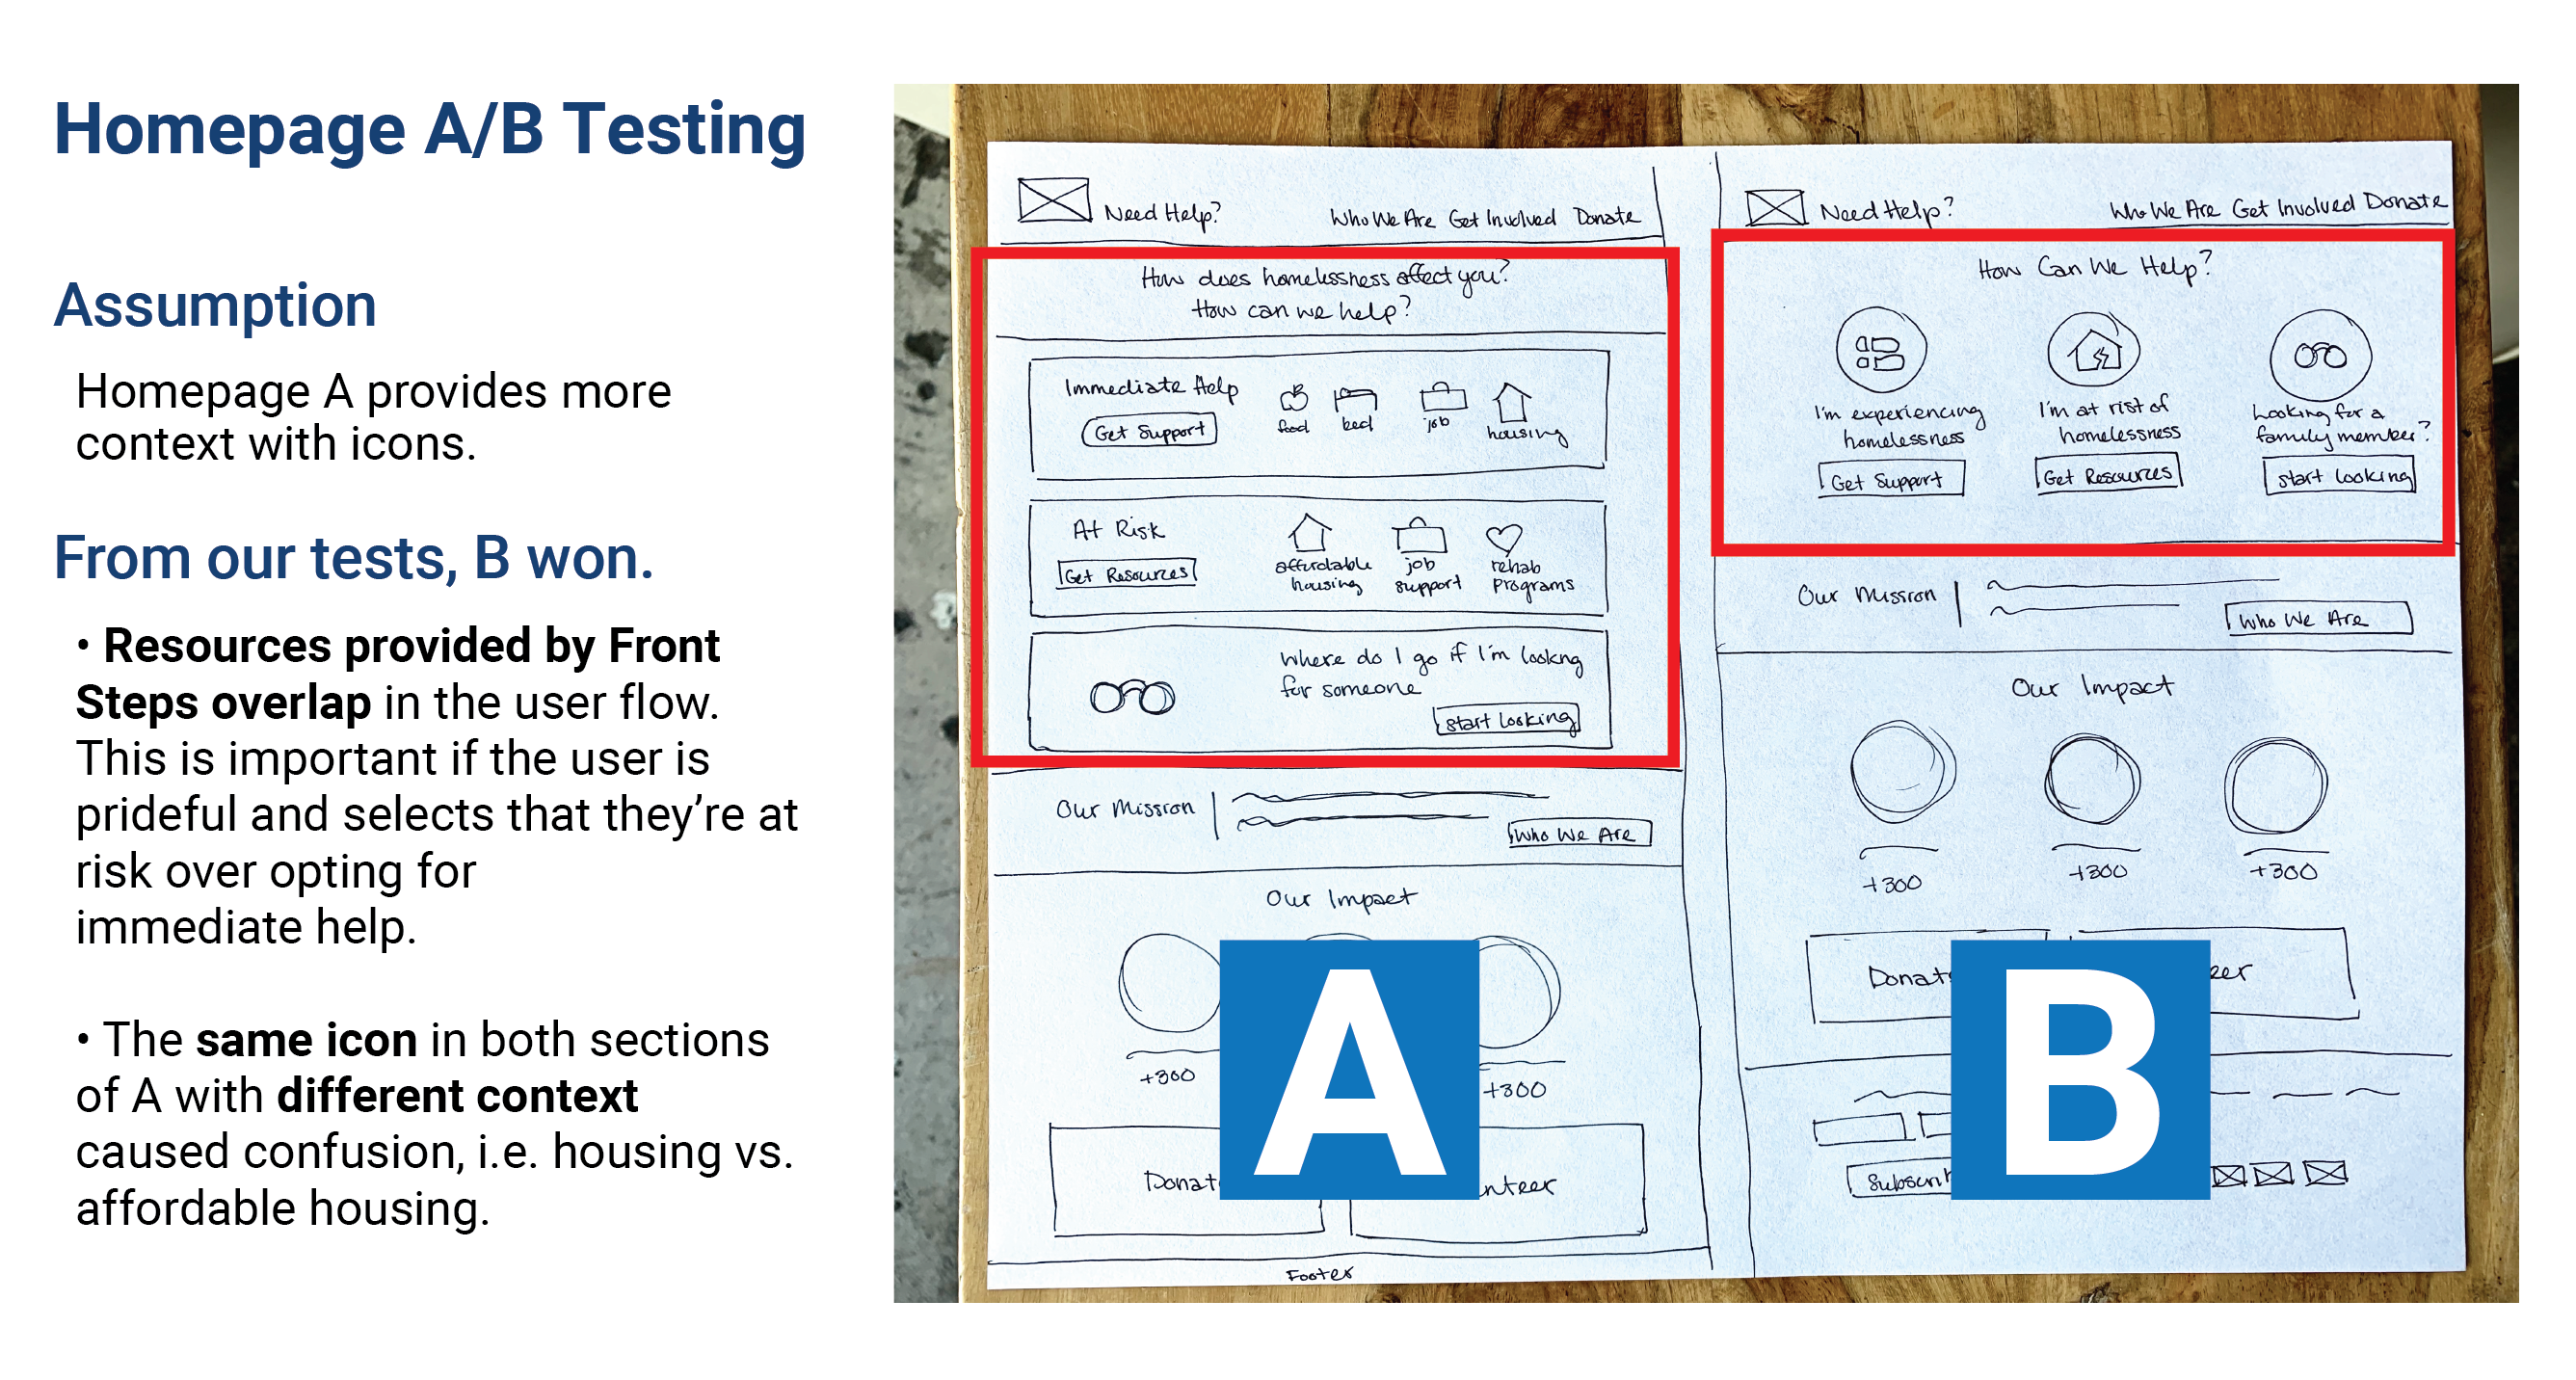 Homepage A/B Testing
Assumption
Homepage A provides more
context with icons.
From our tests, B won.
• Resources provided by Front
Steps overlap in the user flow.
This is important if the user is
prideful and selects that they’re at
risk over opting for
immediate help.
• The same icon in both sections
of A with different context
caused confusion, i.e. housing vs.
affordable housing.
Need Help? Who We Are Get Involved Donate
How does homelessness affect you?
How can we help?
Immediate Help
Get Support
food bed job housing
At Risk
Get Resources
affordable
housing
job
support
rehab
programs
Where do I go if I'm lookng
for someone
start looking
Our Mission
Who We Are
Our Impact
+300 +300
Donat
nteer
Footer
A
Need Help? Who We Are Get Involved Donate
How Can We Help?
I'm experiencing
homelessness
Get Support
I'm at risk of
homelessness
Get Resources
Looking for a
family member?
start looking
Our Mission
Who We Are
Our Impact
+300 +300 +300
Donat
eer
Subscri
B